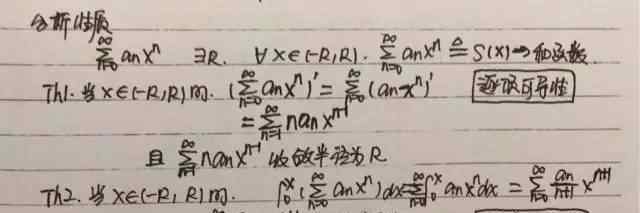 分析性质
∑_{n=0}^{∞} anxⁿ ∃R. ∀x∈(-R,R). ∑_{n=0}^{∞} anxⁿ ≜ S(x) → 和函数
Th1. 当x∈(-R,R)时. (∑_{n=0}^{∞} anxⁿ)' = ∑_{n=0}^{∞} (anxⁿ)' 逐项可导性
= ∑_{n=1}^{∞} nanxⁿ⁻¹
且 ∑_{n=1}^{∞} nanxⁿ⁻¹ 收敛半径为R
Th2. 当x∈(-R,R)时. ∫₀ˣ(∑_{n=0}^{∞} anxⁿ)dx = ∑_{n=0}^{∞} ∫₀ˣ anxⁿdx = ∑_{n=0}^{∞} an/(n+1) xⁿ⁺¹